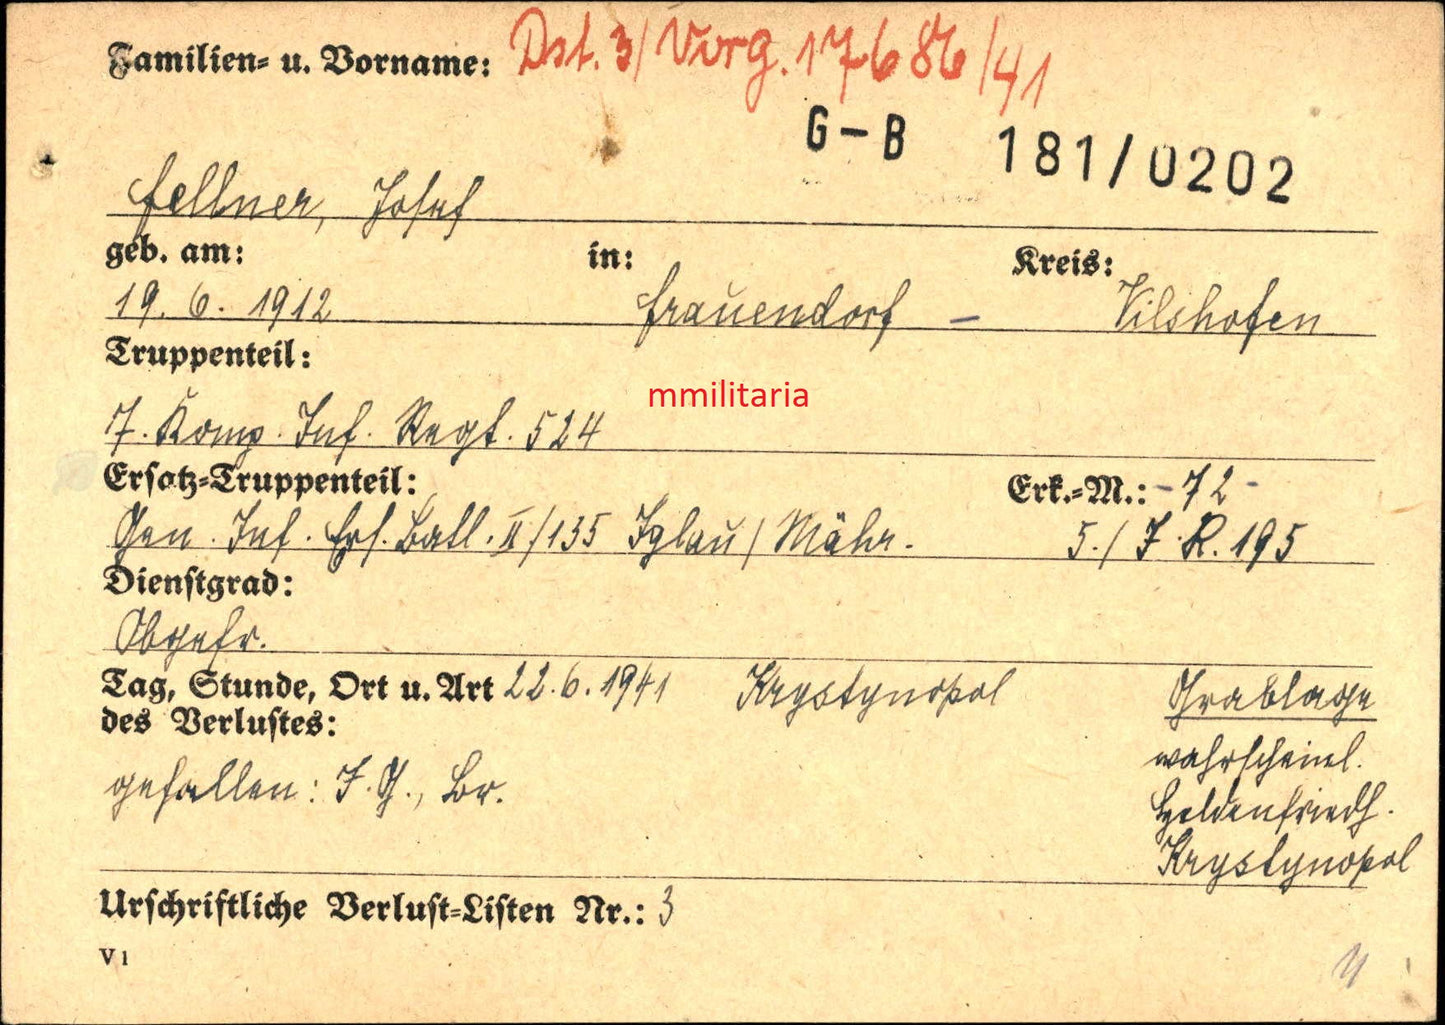 Familien- u. Vorname: Dst. 3/ Vorg. 17686/41
G-B 181/0202
Fellner, Josef
geb. am: in: Kreis:
19. 6. 1912 Frauendorf - Vilshofen
Truppenteil:
mmilitaria
7. Komp. Inf. Regt. 524
Ersatz-Truppenteil: Erk.-M.: -72-
Gen. Inf. Ers. Batl. II/135 Iglau/Mähr. 5./ J.R. 195
Dienstgrad:
Obgefr.
Tag, Stunde, Ort u. Art 22.6.1941 Krystynopol Grablage
des Verlustes:
wahrscheinl.
gefallen: J.G., Br.
Heldenfriedh.
Krystynopol
Urschriftliche Verlust-Listen Nr.: 3
V1